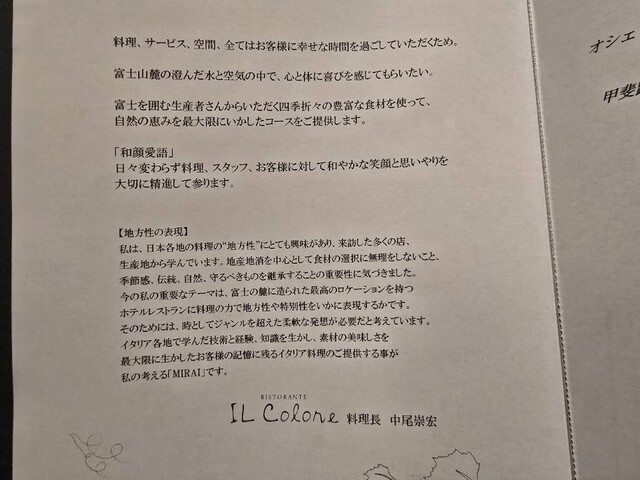 料理、サービス、空間、全てはお客様に幸せな時間を過ごしていただくため。
富士山麓の澄んだ水と空気の中で、心と体に喜びを感じてもらいたい。
富士を囲む生産者さんからいただく四季折々の豊富な食材を使って、
自然の恵みを最大限にいかしたコースをご提供します。
「和顔愛語」
日々変わらず料理、スタッフ、お客様に対して和やかな笑顔と思いやりを
大切に精進して参ります。
【地方性の表現】
私は、日本各地の料理の“地方性”にとても興味があり、来訪した多くの店、
生産地から学んでいます。地産地消を中心として食材の選択に無理をしないこと、
季節感、伝統、自然、守るべきものを継承することの重要性に気づきました。
今の私の重要なテーマは、富士の麓に造られた最高のロケーションを持つ
ホテルレストランに料理の力で地方性や特別性をいかに表現するかです。
そのためには、時としてジャンルを超えた柔軟な発想が必要だと考えています。
イタリア各地で学んだ技術と経験、知識を生かし、素材の美味しさを
最大限に生かしたお客様の記憶に残るイタリア料理のご提供する事が
私の考える「MIRAI」です。
RISTORANTE
IL Colore 料理長 中尾崇宏
オシェ
甲斐